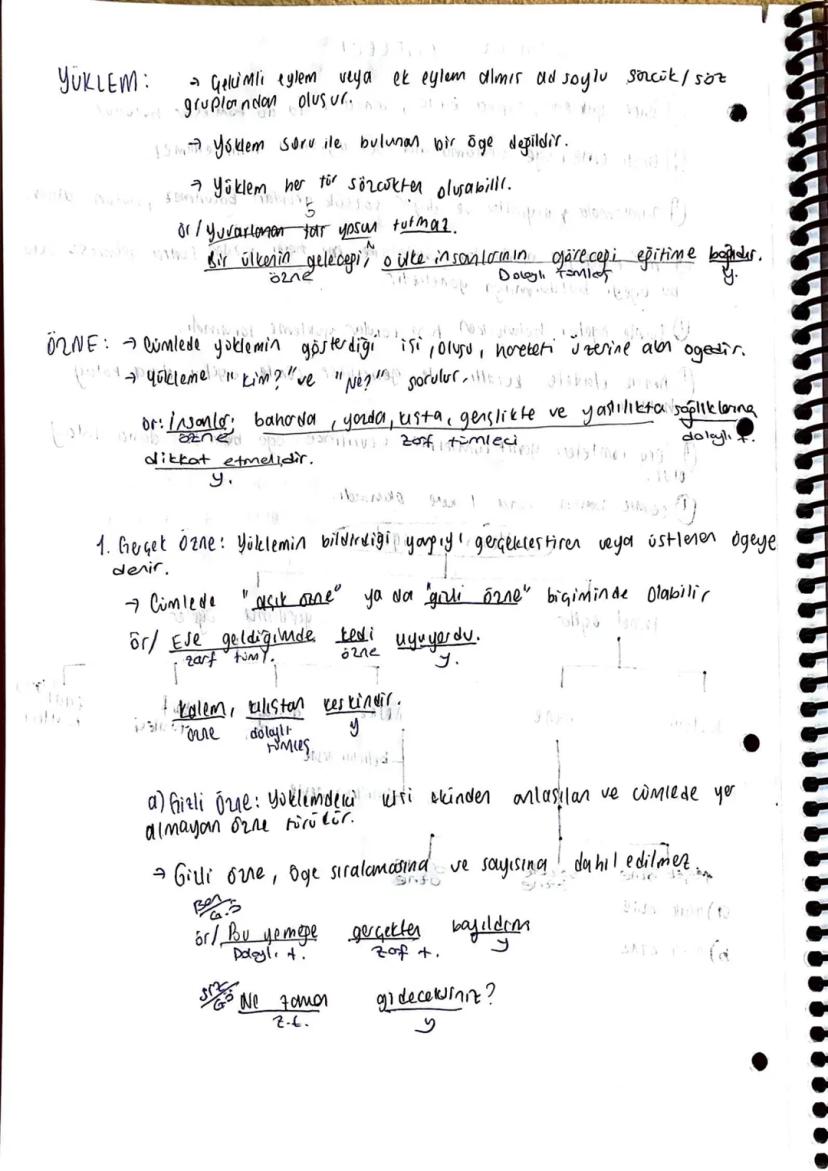 YÜKLEM: → Çekimli eylem veya ek eylem almış ad soylu sözcük/söz
gruplarından oluşur.
→ Yüklem soru ile bulunan bir öge değildir.
→ Yüklem her tür sözcükten oluşabilir.
ör/ Yuvarlanan taş yosun tutmaz.
Bir ülkenin geleceği, o ülke insanlarının göreceği eğitime bağlıdır.
özne Dolaylı tümleç y.
ÖZNE: → Cümlede yüklemin gösterdiği işi, oluşu, hareketi üzerine alan ögedir.
→ Yükleme "Kim?" ve "Ne?" sorulur.
ör: İnsanlar; baharda, yazda, kışta, gençlikte ve yaşlılıkta sağlıklarına
özne zarf tümleci dolaylı t.
dikkat etmelidir.
y.
1. Gerçek Özne: Yüklemin bildirdiği yargıyı gerçekleştiren veya üstlenen ögeye
denir.
→ Cümlede "açık özne" ya da "gizli özne" biçiminde olabilir
ör/ Eve geldiğimde kedi uyuyordu.
zarf tüm. özne y.
Kalem, kılıçtan keskindir.
özne dolaylı y
tümleç
a) Gizli Özne: Yüklemdeki kişi ekinden anlaşılan ve cümlede yer
almayan özne türüdür.
→ Gizli özne, öge sıralamasına ve sayısına dahil edilmez.
Ben
G.Ö
ör/ Bu yemeğe gerçekten bayıldım
Dolaylı t. zarf t. y
siz
G.Ö
Ne zaman gideceksiniz?
z.t. y